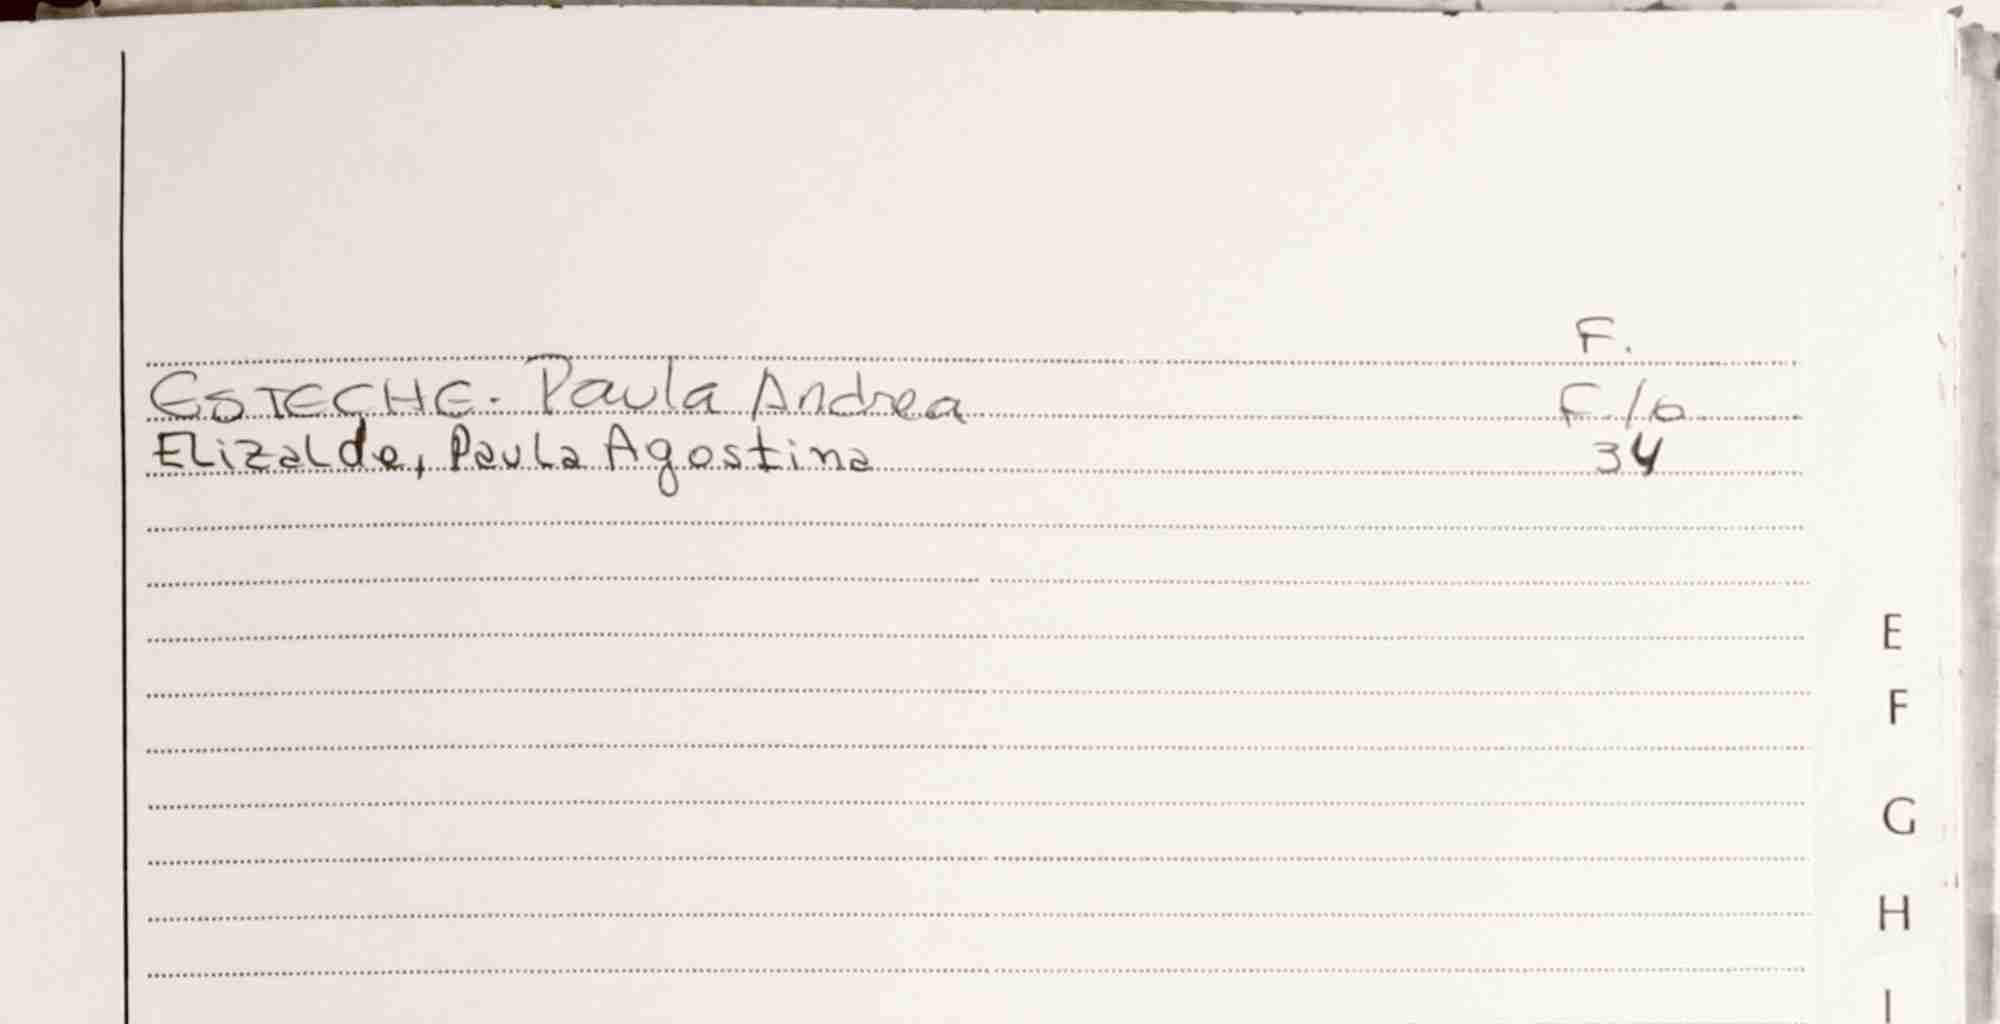 F.
ESTECHE. Paula Andrea F./o
Elizalde, Paula Agostina 34
E
F
G
H
I